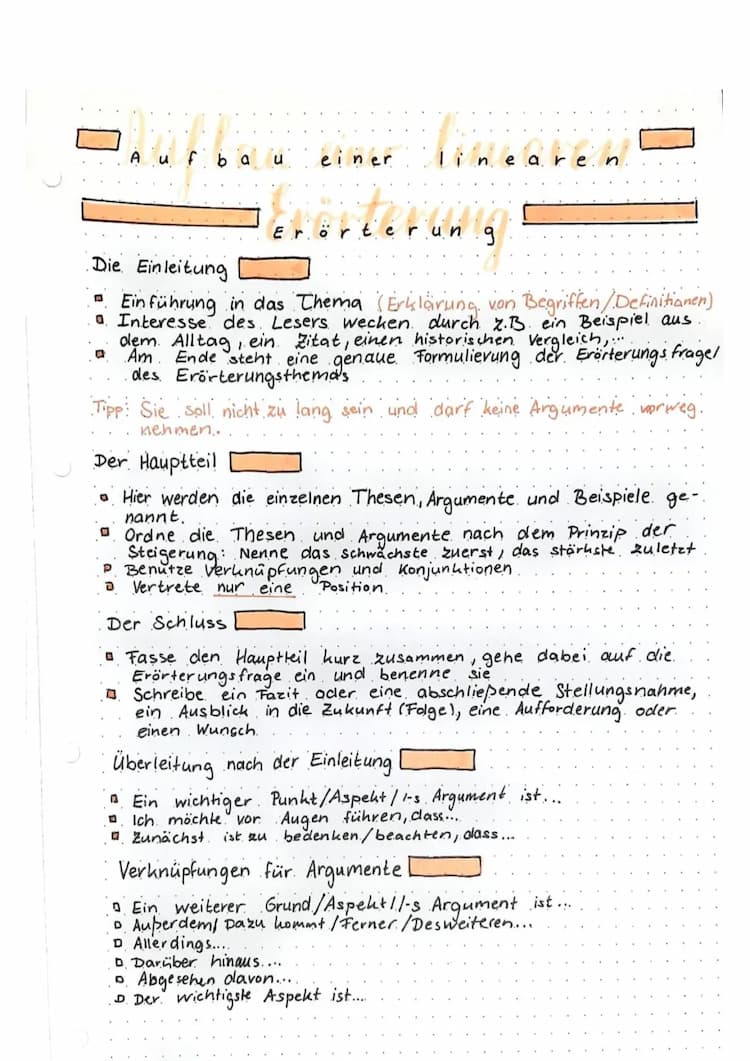 Aufbau einer linearen
Erörterung
Die Einleitung
Einführung in das Thema (Erklärung von Begriffen/Definitionen)
Interesse des Lesers wecken durch z.B. ein Beispiel aus
dem Alltag, ein Zitat, einen historischen Vergleich,...
Am Ende steht eine genaue Formulierung der Erörterungsfrage/
des Erörterungsthemas
Tipp: Sie soll nicht zu lang sein und darf keine Argumente vorweg
nehmen.
Der Hauptteil
Hier werden die einzelnen Thesen, Argumente und Beispiele ge-
nannt.
Ordne die Thesen und Argumente nach dem Prinzip der
Steigerung: Nenne das schwächste zuerst, das stärkste zuletzt
Benutze Verknüpfungen und Konjunktionen
Vertrete nur eine Position
Der Schluss
Fasse den Hauptteil kurz zusammen, gehe dabei auf die
Erörterungsfrage ein und benenne sie
Schreibe ein Fazit oder eine abschließende Stellungsnahme,
ein Ausblick in die Zukunft (Folge), eine Aufforderung oder
einen Wunsch
Überleitung nach der Einleitung
Ein wichtiger Punkt/Aspekt/1-s Argument ist...
Ich möchte vor Augen führen, dass...
Zunächst ist zu bedenken/beachten, dass...
Verknüpfungen für Argumente
Ein weiterer Grund/Aspekt//-s Argument ist...
Außerdem/ Dazu kommt/Ferner/Desweiteren...
Allerdings...
Darüber hinaus...
Abgesehen davon...
Der wichtigste Aspekt ist...